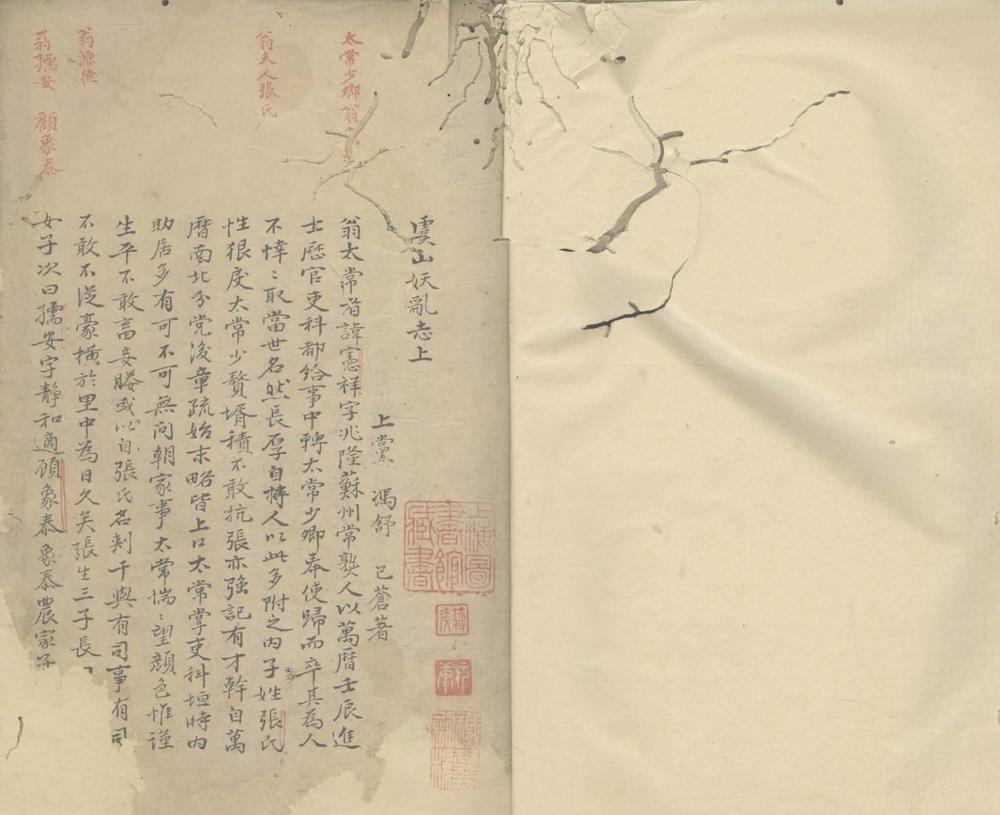 虞山妖亂志上
上黨 馮舒 已蒼著
太常少卿翁
翁太常者諱憲祥字兆隆蘇州常熟人以萬曆壬辰進
士歷官吏科都給事中轉太常少卿奉使歸而卒其為人
不悻〻取當世名然長厚自持人以此多附之內子姓張氏
翁夫人張氏
性狠戾太常少贅壻積不敢抗張亦強記有才幹自萬
曆南北分党後章疏始末略皆上口太常掌吏科垣時內
助居多有可不可無問朝家事太常惴〻望顏色惟謹
生平不敢畜妾媵或以自張氏名刺干與有司事有司
不敢不從豪橫於里中為日久矣張生三子長
翁源德
女子次曰孺安字靜和適顧象泰象泰農家子
翁孺安 顧象泰
上海圖書館藏書